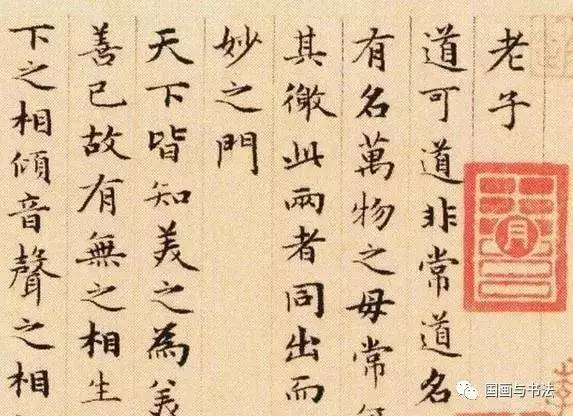 老子
道可道非常道名
有名萬物之母常
其徼此兩者同出而
妙之門
天下皆知美之為美
善已故有無之相生
下之相傾音聲之相
月
国画与书法